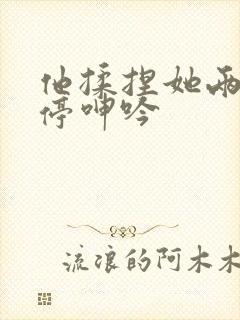 他揉捏她两
停呻吟
流浪的阿木木